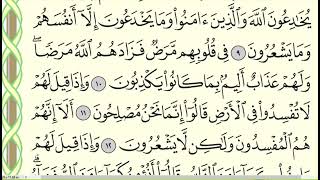 يُخَٰدِعُونَ ٱللَّهَ وَٱلَّذِينَ ءَامَنُوا۟ وَمَا يَخْدَعُونَ إِلَّآ أَنفُسَهُمْ
وَمَا يَشْعُرُونَ ٩ فِى قُلُوبِهِم مَّرَضٌ فَزَادَهُمُ ٱللَّهُ مَرَضًا ۖ
وَلَهُمْ عَذَابٌ أَلِيمٌۢ بِمَا كَانُوا۟ يَكْذِبُونَ ١٠ وَإِذَا قِيلَ لَهُمْ
لَا تُفْسِدُوا۟ فِى ٱلْأَرْضِ قَالُوٓا۟ إِنَّمَا نَحْنُ مُصْلِحُونَ ١١ أَلَآ إِنَّهُمْ
هُمُ ٱلْمُفْسِدُونَ وَلَٰكِن لَّا يَشْعُرُونَ ١٢ وَإِذَا قِيلَ لَهُمْ